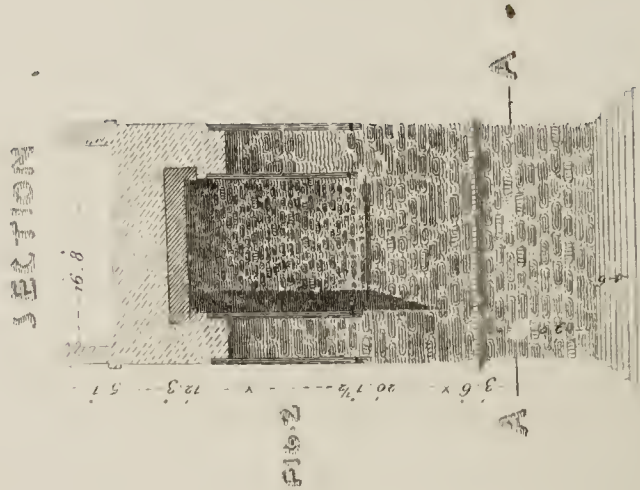 SECTION
16.8
5.1
12.3
20.1½
3.6
FIG. 2
A
A